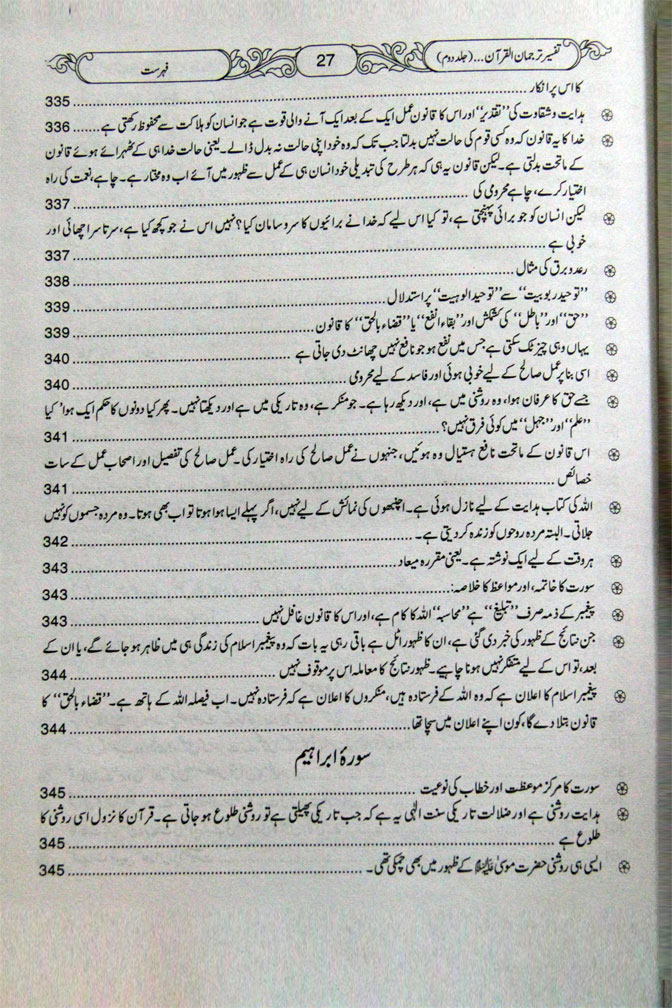 تفسیر ترجمان القرآن... (جلد دوم)
27
فہرست
کا اس پر انکار ........ 335
ہدایت و شقاوت کی ”تقدیر“ اور اس کا قانون عمل ایک کے بعد ایک آنے والی قوت ہے جو انسان کو ہلاکت سے محفوظ رکھتی ہے ........ 336
خدا کا یہ قانون کہ وہ کسی قوم کی حالت نہیں بدلتا جب تک کہ وہ خود اپنی حالت نہ بدل ڈالے۔ یعنی حالت خدا ہی کے ٹھہرائے ہوئے قانون
کے ماتحت بدلتی ہے۔ لیکن قانون یہ ہی کہ ہر طرح کی تبدیلی خود انسان ہی کے عمل سے ظہور میں آئے اب وہ مختار ہے۔ چاہے، نعمت کی راہ
اختیار کرے، چاہے محرومی کی ........ 337
لیکن انسان کو جو برائی پہنچتی ہے، تو کیا اس لیے کہ خدا نے برائیوں کا سروسامان کیا؟ نہیں اس نے جو کچھ کیا ہے، سرتاسر اچھائی اور
خوبی ہے ........ 337
رعد و برق کی مثال ........ 338
”توحید ربوبیت“ سے ”توحید الوہیت“ پر استدلال ........ 339
”حق“ اور ”باطل“ کی کشمکش اور ”بقاء انفع“ یا ”قضاء بالحق“ کا قانون ........ 339
یہاں وہی چیز ٹک سکتی ہے جس میں نفع ہو جو نافع نہیں چھانٹ دی جاتی ہے ........ 340
اسی بنا پر عمل صالح کے لیے خوبی ہوئی اور فاسد کے لیے محرومی ........ 340
جسے حق کا عرفان ہوا، وہ روشنی میں ہے، اور دیکھ رہا ہے۔ جو منکر ہے، وہ تاریکی میں ہے اور دیکھتا نہیں۔ پھر کیا دونوں کا حکم ایک ہوا‘ کیا
”علم“ اور ”جہل“ میں کوئی فرق نہیں؟ ........ 341
اس قانون کے ماتحت نافع ہستیاں وہ ہوئیں، جنہوں نے عمل صالح کی راہ اختیار کی۔ عمل صالح کی تفصیل اور اصحاب عمل کے سات
خصائص ........ 341
اللہ کی کتاب ہدایت کے لیے نازل ہوئی ہے۔ اچنبھوں کی نمائش کے لیے نہیں، اگر پہلے ایسا ہوا ہوتا تو اب بھی ہوتا۔ وہ مردہ جسموں کو نہیں
جلاتی۔ البتہ مردہ روحوں کو زندہ کر دیتی ہے۔ ........ 342
ہر وقت کے لیے ایک نوشتہ ہے۔ یعنی مقررہ میعاد ........ 343
سورت کا خاتمہ، اور مواعظ کا خلاصہ: ........ 343
پیغمبر کے ذمہ صرف ”تبلیغ“ ہے ”محاسبہ“ اللہ کا کام ہے، اور اس کا قانون غافل نہیں ........ 343
جن نتائج کے ظہور کی خبر دی گئی ہے، ان کا ظہور اٹل ہے باقی رہی یہ بات کہ وہ پیغمبر اسلام کی زندگی ہی میں ظاہر ہو جائے گے، یا ان کے
بعد، تو اس کے لیے متفکر نہیں ہونا چاہیے۔ ظہور نتائج کا معاملہ اس پر موقوف نہیں ........ 344
پیغمبر اسلام کا اعلان ہے کہ وہ اللہ کے فرستادہ ہیں، منکروں کا اعلان ہے کہ فرستادہ نہیں۔ اب فیصلہ اللہ کے ہاتھ ہے۔ ”قضاء بالحق“ کا
قانون بتلا دے گا، کون اپنے اعلان میں سچا تھا ........ 344
سورۂ ابراہیم
سورت کا مرکز موعظت اور خطاب کی نوعیت ........ 345
ہدایت روشنی ہے اور ضلالت تاریکی سنت الٰہی یہ ہے کہ جب تاریکی پھیلتی ہے تو روشنی طلوع ہو جاتی ہے۔ قرآن کا نزول اسی روشنی کا
طلوع ہے ........ 345
ایسی ہی روشنی حضرت موسیٰ علیہ السلام کے ظہور میں بھی چمکی تھی۔ ........ 345